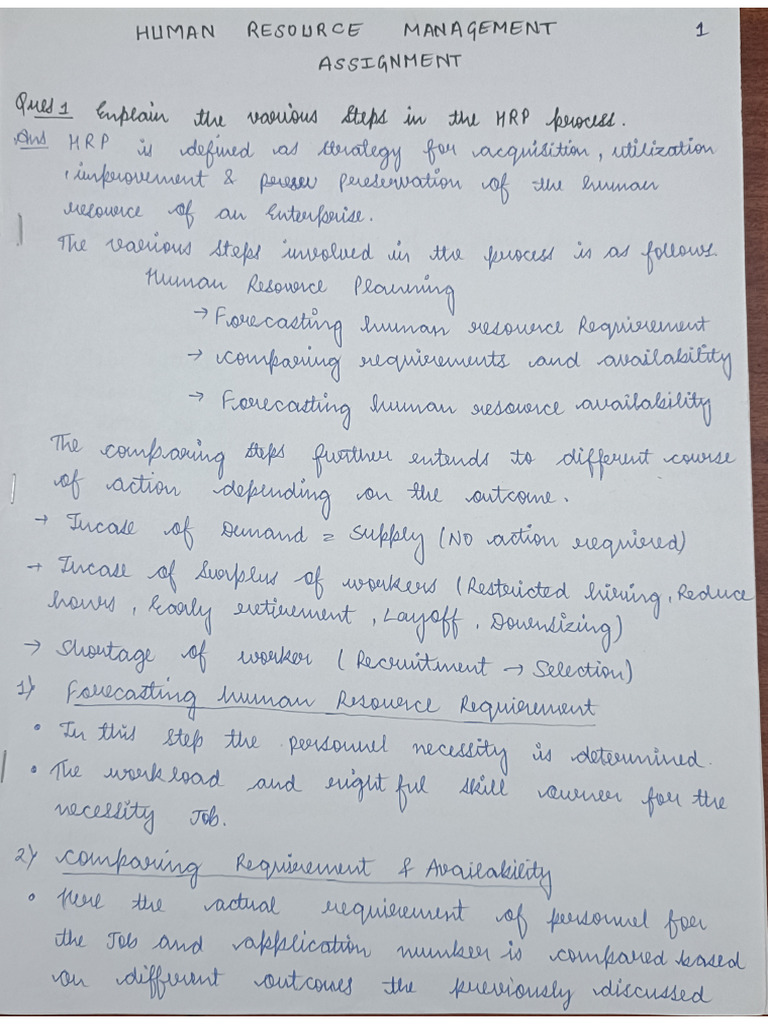 HUMAN RESOURCE MANAGEMENT 1
ASSIGNMENT
Ques 1 Explain the various steps in the HRP process.
Ans HRP is defined as strategy for acquisition, utilization
, improvement & preser preservation of the human
resource of an Enterprise.
The various steps involved in the process is as follows.
Human Resource Planning
→ Forecasting human resource Requirement
→ comparing requirements and availability
→ Forecasting human resource availability
The comparing steps further entends to different course
of action depending on the outcome.
→ Incase of Demand = Supply (No action required)
→ Incase of Surplus of workers (Restricted hiring, Reduce
hours, Early retirement, Layoff, Downsizing)
→ Shortage of worker (Recruitment → Selection)
1) Forecasting human Resource Requirement
• In this step the personnel necessity is determined.
• The workload and right ful skill owner for the
necessity Job.
2) Comparing Requirement & Availability
• Here the actual requirement of personnel for
the Job and application number is compared based
on different outcomes the previously discussed